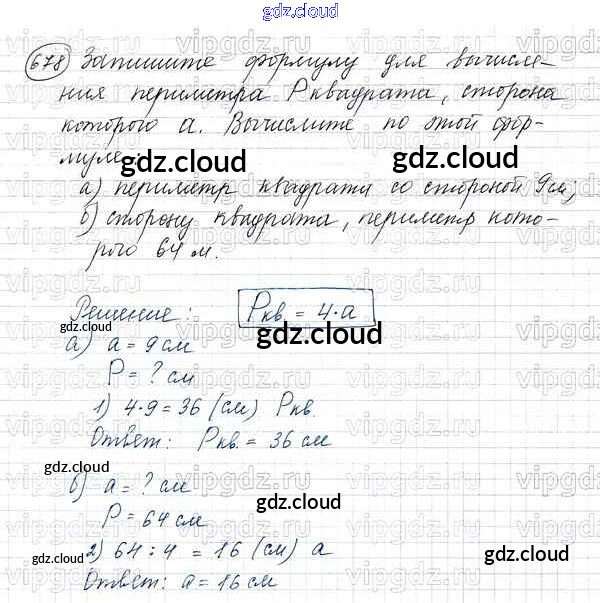 gdz.cloud
678 Запишите формулу для вычисле-
ния периметра P квадрата, сторона
которого a. Вычислите по этой фор-
муле
gdz.cloud
а) периметр квадрата со стороной 9см;
б) сторону квадрата, периметр кото-
рого 64 м.
gdz.cloud
Решение: Pкв = 4·a
gdz.cloud
gdz.cloud
а) a = 9 см
P = ? см
1) 4·9 = 36 (см) Pкв.
gdz.cloud
Ответ: Pкв. = 36 см
gdz.cloud
б) a = ? см
gdz.cloud
P = 64 см
2) 64 : 4 = 16 (см) a
gdz.cloud
gdz.cloud
Ответ: a = 16 см